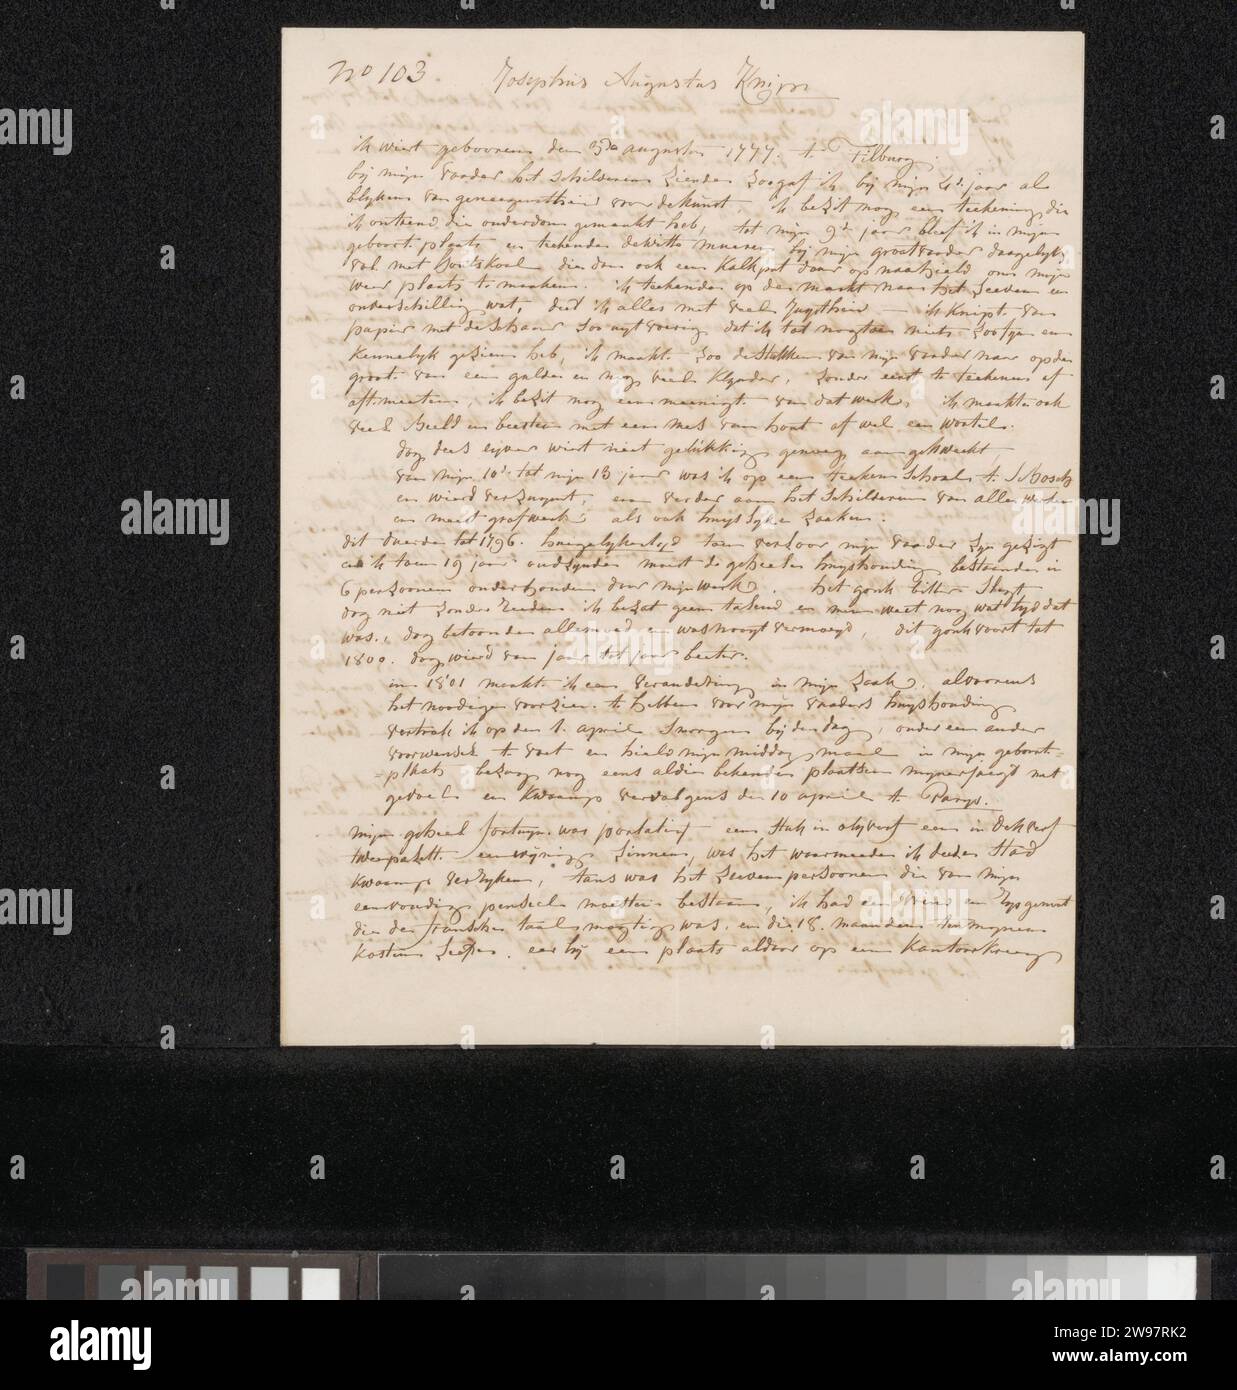 No 103. Josephus Augustus Knip
ik wiert gebooren den 3de augustus 1777. te Tilburg.
bij mijn vaader het schilderen ziende zoo gaf ik bij mijn 4de jaar al
blyken van geneegentheid voor de kunst, ik bezit nog een teekening die
ik ontrend die ouderdom gemaakt heb, tot mijn 9de jaar bleef ik in mijn
geboort plaats en teekende de witte mueren bij mijn grootvaader daagelyks
vol met houtskool die dan ook een kalkpot daar op nahield om mijn
weer plaats te maaken. ik teekende op de markt naar het leeven en
onverschillig wat, deed ik alles met veel
papier met de schaar zoo uytvoerig dat ik tot nogtoe niets zoo fyn en
kennelyk gezien heb, ik maakte zoo de stukken van mijn vaader naar op de
groote van een gulden en nog veel klynder, zonder eerst te teekenen of
aftmeeten, ik bezit nog een meenigte van dat werk, ik maakte ook
veel beelden beesten met een mes van hout of wel een wortel.
dog dees eyver wiert niet gelukkig genoeg aangekweekt,
van mijn 10de tot mijn 13 jaar was ik op een teeken school te SBosch
en wierd verzuymt, en verder aan het schilderen van alle
en meest grof werk als ook huyslyke zaaken.
dit duerde tot 1796. hoegelykertyd toen verloor mijn vaader zyn gezigt
en ik toen 19 jaar oud zynde moest de geheele huyshouding bestaande in
6 persoonen onderhouden door mijn werk. het gonk bitter slegt
dog niet zonder reeden ik bezat geen talend en men weet nog wat tyd dat
was, dog betoonde allen moed en was nooyt vermoeyd, dit gonk voort tot
1800. dog wierd van jaar tot jaar beeter.
in 1801 maakte ik een verandering in mijn zaak, alvoorens
het noodige voorzien te hebben voor mijn vaaders huyshouding
vertrok ik op den 1. april smorgens bij den dag, onder een ander
voorwendsel te voet en hield mijn middagmaal in mijn geboort=
=plaats bezogt nog eens al die bekende plaatsen met
gevoel en kwaamp vervolgens den 10 april te Parys.
mijn geheel fortuyn was portatief een stuk in olyverf een in dekverf
twee palett en wynig linnen, was het waarmeeden ik deeze stad
kwaamp verryken, tans was het zeeven persoonen die van mijn
eenvoudig penseel moesten bestaan, ik had een vriend en rysgenoot
die de fransche taal magtig was. en die 18. maanden ten mynen
kosten leefde. eer hij een plaats aldaar op een kantoor kreeg